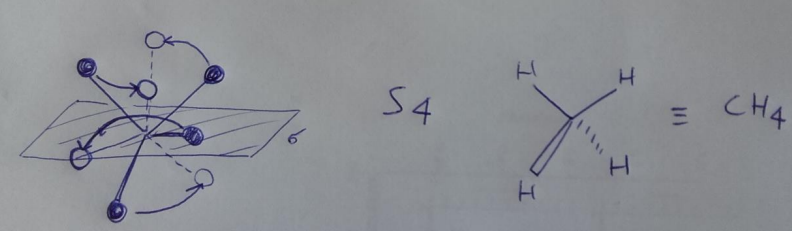 σ
S4
H
H
H
H
≡ CH4